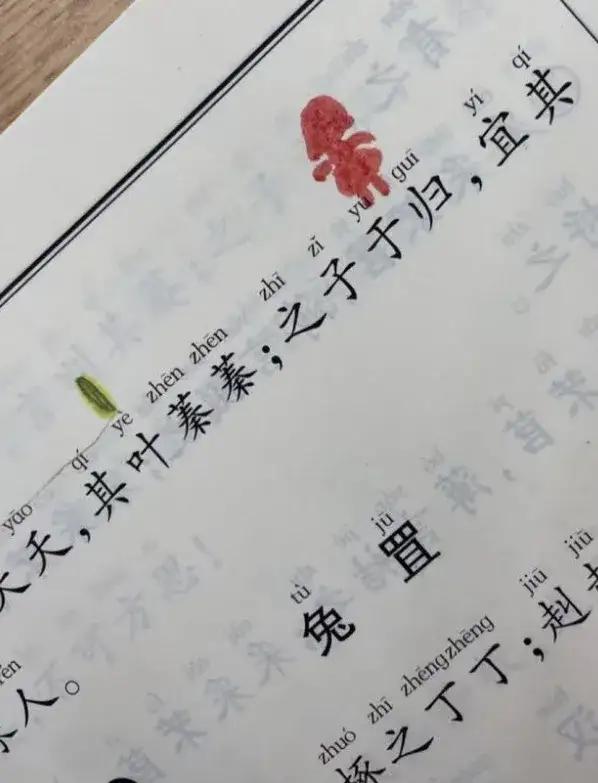 yí qí
yāo qí yè zhēn zhēn zhī zǐ yú guī
夭，其叶蓁蓁；之子于归，宜其
人。
tù jū
兔罝
zhuó zhī zhēng zhēng jiū jiū
椓之丁丁；赳